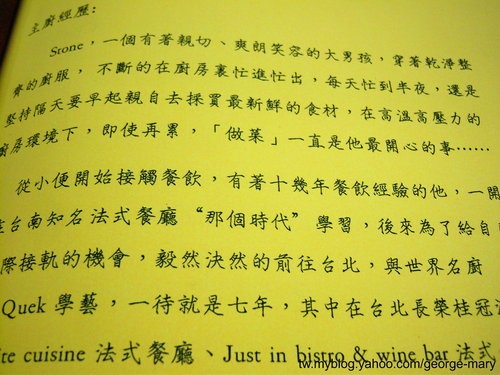 主廚經歷:
Stone，一個有著親切、爽朗笑容的大男孩，穿著乾淨整
齊的廚服，不斷的在廚房裏忙進忙出，每天忙到半夜，還是
堅持隔天要早起親自去採買最新鮮的食材，在高溫高壓力的
廚房環境下，即使再累，「做菜」一直是他最開心的事……
從小便開始接觸餐飲，有著十幾年餐飲經驗的他，一開
在台南知名法式餐廳“那個時代”學習，後來為了給自
際接軌的機會，毅然決然的前往台北，與世界名廚
Quek 學藝，一待就是七年，其中在台北長榮桂冠
cuisine 法式餐廳、Just in bistro & wine bar 法式
tw.myblog.yahoo.com/george-mary